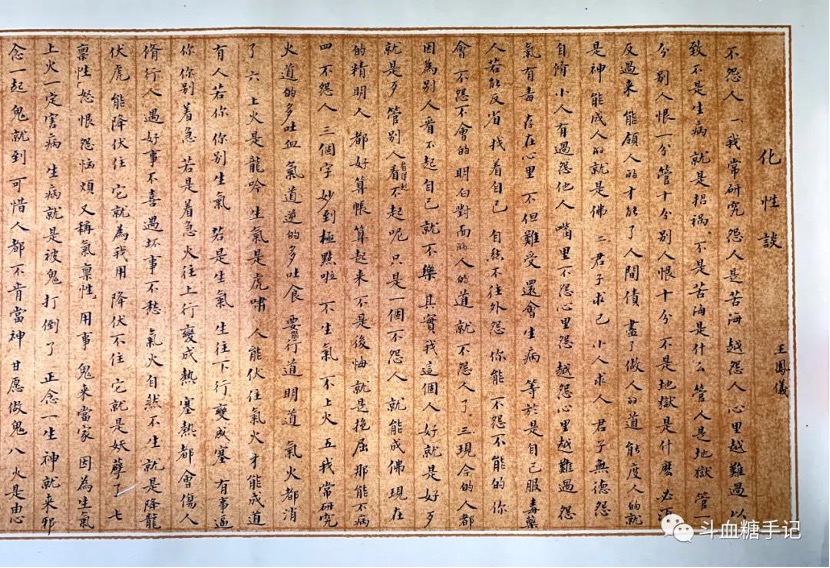 化性談
王鳳儀
不怨人 一 我常研究 怨人是苦海 越怨人 心里越難過 以
致不是生病 就是招禍 不是苦海是什么 管人是地獄 管一
分 别人恨一分 管十分 别人恨十分 不是地獄是什麼 必須
反過來 能領人的才能了人間債 盡了做人的道 能度人的就
是神 能成人的就是佛 二 君子求己 小人求人 君子無德怨
自脩 小人有過怨他人 嘴里不怨心里怨 越怨心里越難過 怨
氣有毒 存在心里 不但難受 還會生病 等於是自己服毒藥
人若能反省 找着自己 自然不往外怨 你能 不怨不能的 你
會 不怨不會的 明白對面的人的道 就不怨人了 三 現今的人都
因為别人看不起自己 就不樂 其實我這個人 好就是好 歹
就是歹 管别人看起看不起呢 只是一個不怨人 就能成佛 現在
的精明人 都好算帳 算起來 不是後悔 就是抱屈 那能不病
四 不怨人 三個字 妙到極點啦 不生氣 不上火 五 我常研究
火道的多吐血 氣道逆的多吐食 要行道 明道 氣火都消
了 六 上火是龍吟 生氣是虎嘯 人能伏住氣火 才能成道
有人若你 你别生氣 若是生氣 生往下行 變成塞 有事逼
你 你别着急 若是着急 火往上行 變成熱 塞熱都會傷人
脩行人 遇好事不喜 遇坏事不愁 氣火自然不生 就是降龍
伏虎 能降伏住 它就為我用 降伏不住 它就是妖孽了 七
禀性 怒恨怨惱煩 又稱氣禀性 用事 鬼來當家 因為生氣
上火一定害病 生病就是被鬼打倒了 正念一生神就来 邪
念一起 鬼就到 可惜人都不肯當神 甘愿做鬼 八 火是由心
斗血糖手记